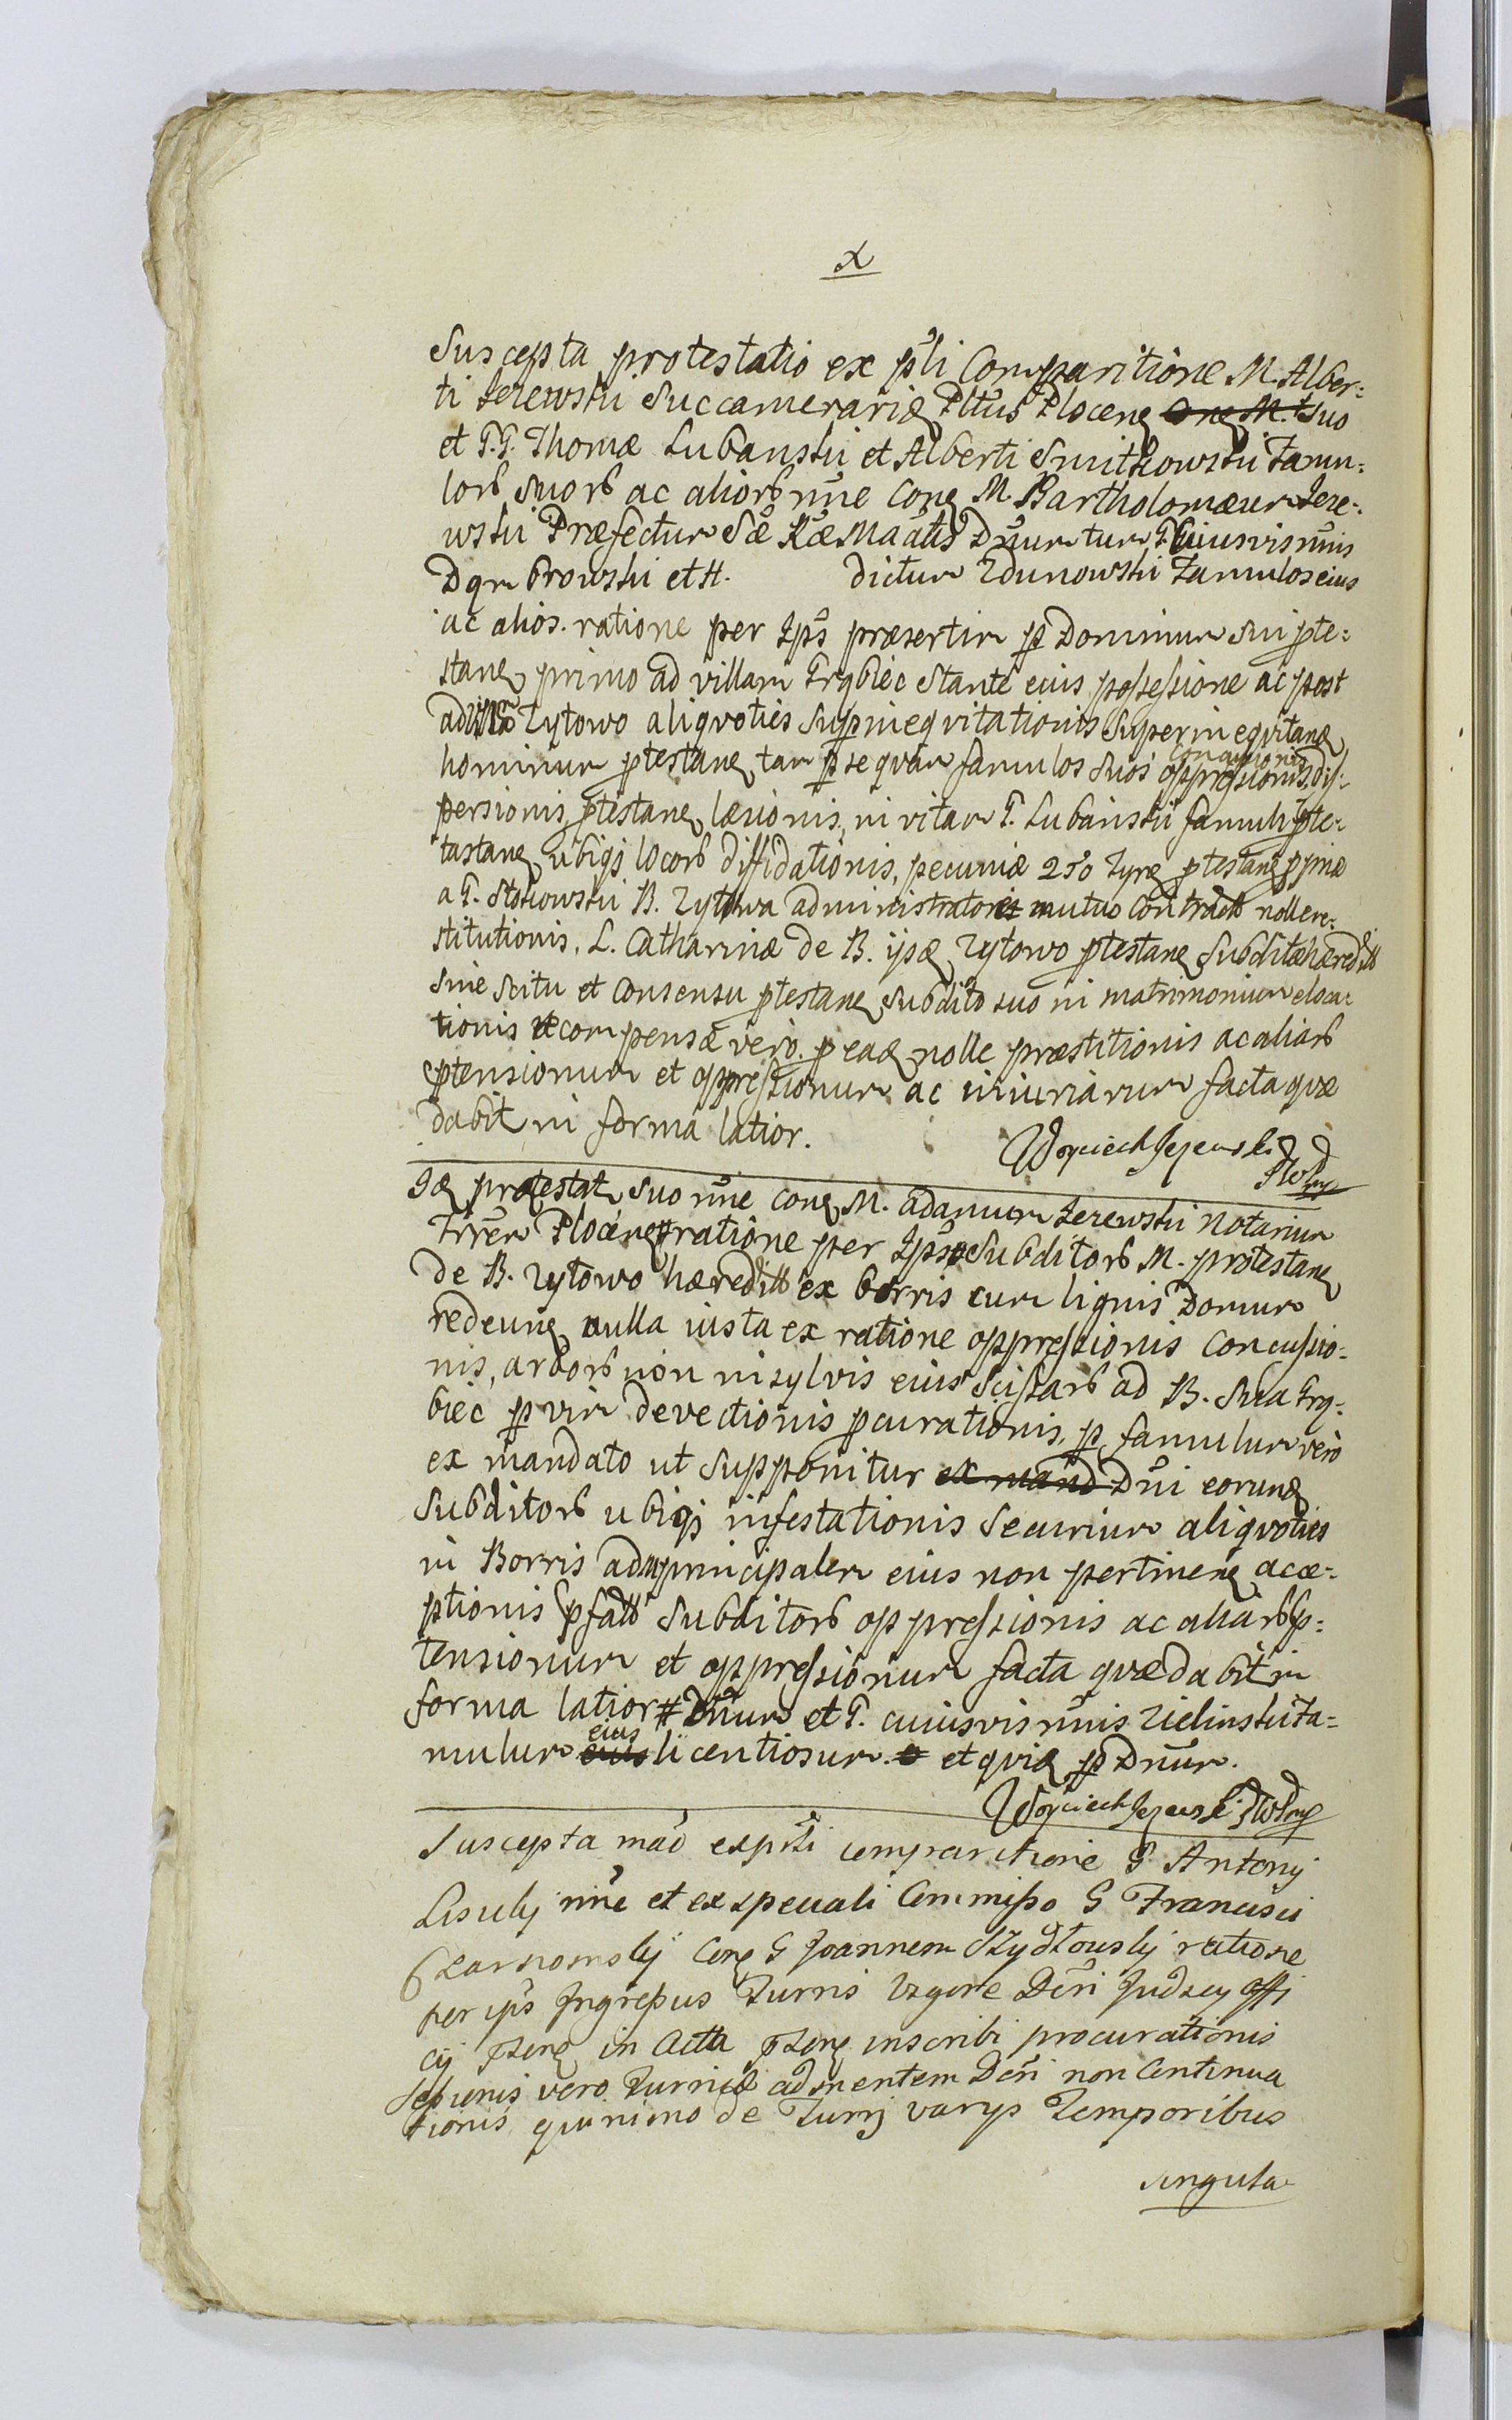 X
Suscepta protestatio ex psli Comparitione M. Alber=
ti Jezewski Succamerariȩ Pltus Plocenȩ Suo
et G.G. Thomæ Lubanski et Alberti Smitkowski Famu=
lorb suorb ac aliorb nne Conȩ M. Bartholomæum Jeze=
wski Præfectum Sæ Ræ Maatis Dnum tum G. Cuiusvis nnis
Dąmbrowski et H. dictum Zdunowski Famulos eius
ac alios. ratione per Ips præsertim p Dominum sui pte=
stanȩ primo ad villam Grąbiec stante eius possessione ac post
ad Zytowo aliqvoties supineqvitationis superineqvitanȩ
hominum ptestanȩ tam p se qvam famulos suos oppressionis, dis=
persionis, ptestanȩ læsionis, in vitam G. Lubanski famuli pte=
tastanȩ ubiqȝ locorb diffidationis, pecuniæ 250 Tynȩ ptestanȩ ppriæ
a G. Stokowski B. Zytowa administratoris mutuo contractȩ nolle re=
stitutionis, L. Catharinæ de B. ipsȩ Zytowo ptestanȩ Subditæ hæreditt
sine scitu et consensu ptestanȩ subdito suo in matrimonium eloca=
tionis recompensæ vero p eaȩ nolle præstitionis ac aliarb
ptensionum et oppressionum ac iniuriarum facta qvæ
dabit in forma latior.
Woyciech Jezewski
Idȩ protestat suo nne conȩ M. Adamum Jezewski Notarium
Trren Plocenȩ # ratione per Ips Subditorb M. protestanȩ
de B. Zytowo hæreditt ex borris cum lignis Domum
redeunȩ nulla iusta ex ratione oppressionis concussio=
nis, arborb non in sylvis eius scissarb ad B. sua Grą=
biec p vim devectionis pcurationis, p famulum vero
ex mandato ut supponitur ex mand Dni eorunȩ
Subditorb ubiqȝ infestationis securium aliqvoties
in Borris ad principalem eius non pertinenȩ acce=
ptionis pfatt Subditorb oppressionis ac aliarb p=
tensionum et oppressionum facta qvæ dabit in
forma latior # Dnum et G. cuiusvis nnis Zielinski Fa=
mulum eius licentiosum et qviȩ p Dnum.
Woyciech Jezewski
Suscepta mad ex psti comparitione G Antonij
Lisickj nne et ex speciali Commisso G Francisci
Czarnomskj Conȩ G Joannem Szydłowskj ratione
per ips Ingressus Turris Vigore Dcri Judzey Offi
cij in Acta inscribi procurationis
Sessionis vero Turris ad mentem Dcri non Continua
tionis quinimo de Turri varijs Temporibus
singula